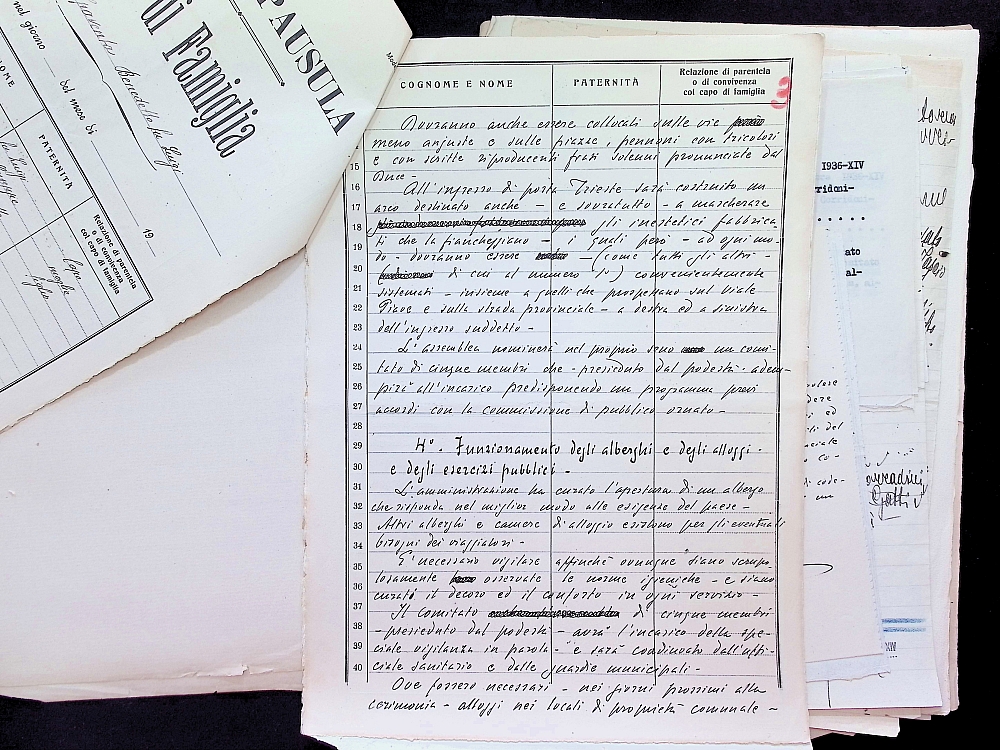 PAUSULA
di Famiglia
nel giorno
del mese di
19
NOME
PATERNITÀ
Relazione di parentela
o di convivenza
col capo di famiglia
Capo
moglie
figlio
COGNOME E NOME
PATERNITÀ
Relazione di parentela
o di convivenza
col capo di famiglia
3
Dovranno anche essere collocati sulle vie
meno anguste e sulle piazze, pennoni con tricolori
15 e con scritte riproducenti frasi solenni pronunciate dal
Duce -
16 All'ingresso di porta Trieste sarà costruito un
17 arco destinato anche - e sovratutto - a mascherare
18 gli inestetici fabbrica
19 ti che la fiancheggiano - i quali però - ad ogni mo-
do - dovranno essere - (come tutti gli altri -
20 di cui al numero 1°) convenientemente
21 sistemati - insieme a quelli che prospettano sul Viale
22 Piave e sulla strada provinciale - a destra ed a sinistra
23 dell'ingresso suddetto -
24 L'assemblea nominerà nel proprio seno un comi-
25 tato di cinque membri che - presieduto dal podestà - adem-
26 pirà all'incarico predisponendo un programma previ
27 accordi con la commissione di pubblico ornato -
28
29 4° - Funzionamento degli alberghi e degli alloggi -
30 e degli esercizi pubblici -
31 L'amministrazione ha curato l'apertura di un albergo
32 che risponda nel miglior modo alle esigenze del paese -
33 Altri alberghi e camere d'alloggio esistono per gli eventuali
34 bisogni dei viaggiatori -
35 E' necessario vigilare affinchè ovunque siano scrupo
36 losamente osservate le norme igieniche - e siano
curati il decoro ed il conforto in ogni servizio -
37 Il Comitato di cinque membri
38 - presieduto dal podestà - avrà l'incarico della spe-
39 ciale vigilanza in parola - e sarà coadiuvato dall'uffi-
40 ciale sanitario e dalle guardie municipali -
Ove fossero necessari - nei giorni prossimi alla
cerimonia - alloggi nei locali di proprietà comunale -
1936-XIV
ridoni-
ato
al-